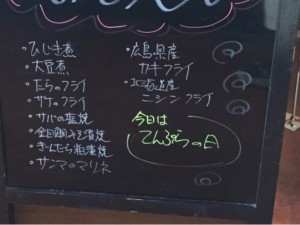 ひじき煮
大豆煮
たらのフライ
サケのフライ
サバの塩焼
金目鯛みそ漬焼
ぎんだら粕漬焼
サンマのマリネ
広島県産
カキフライ
北海道産
ニシンフライ
今日は
てんぷらの日